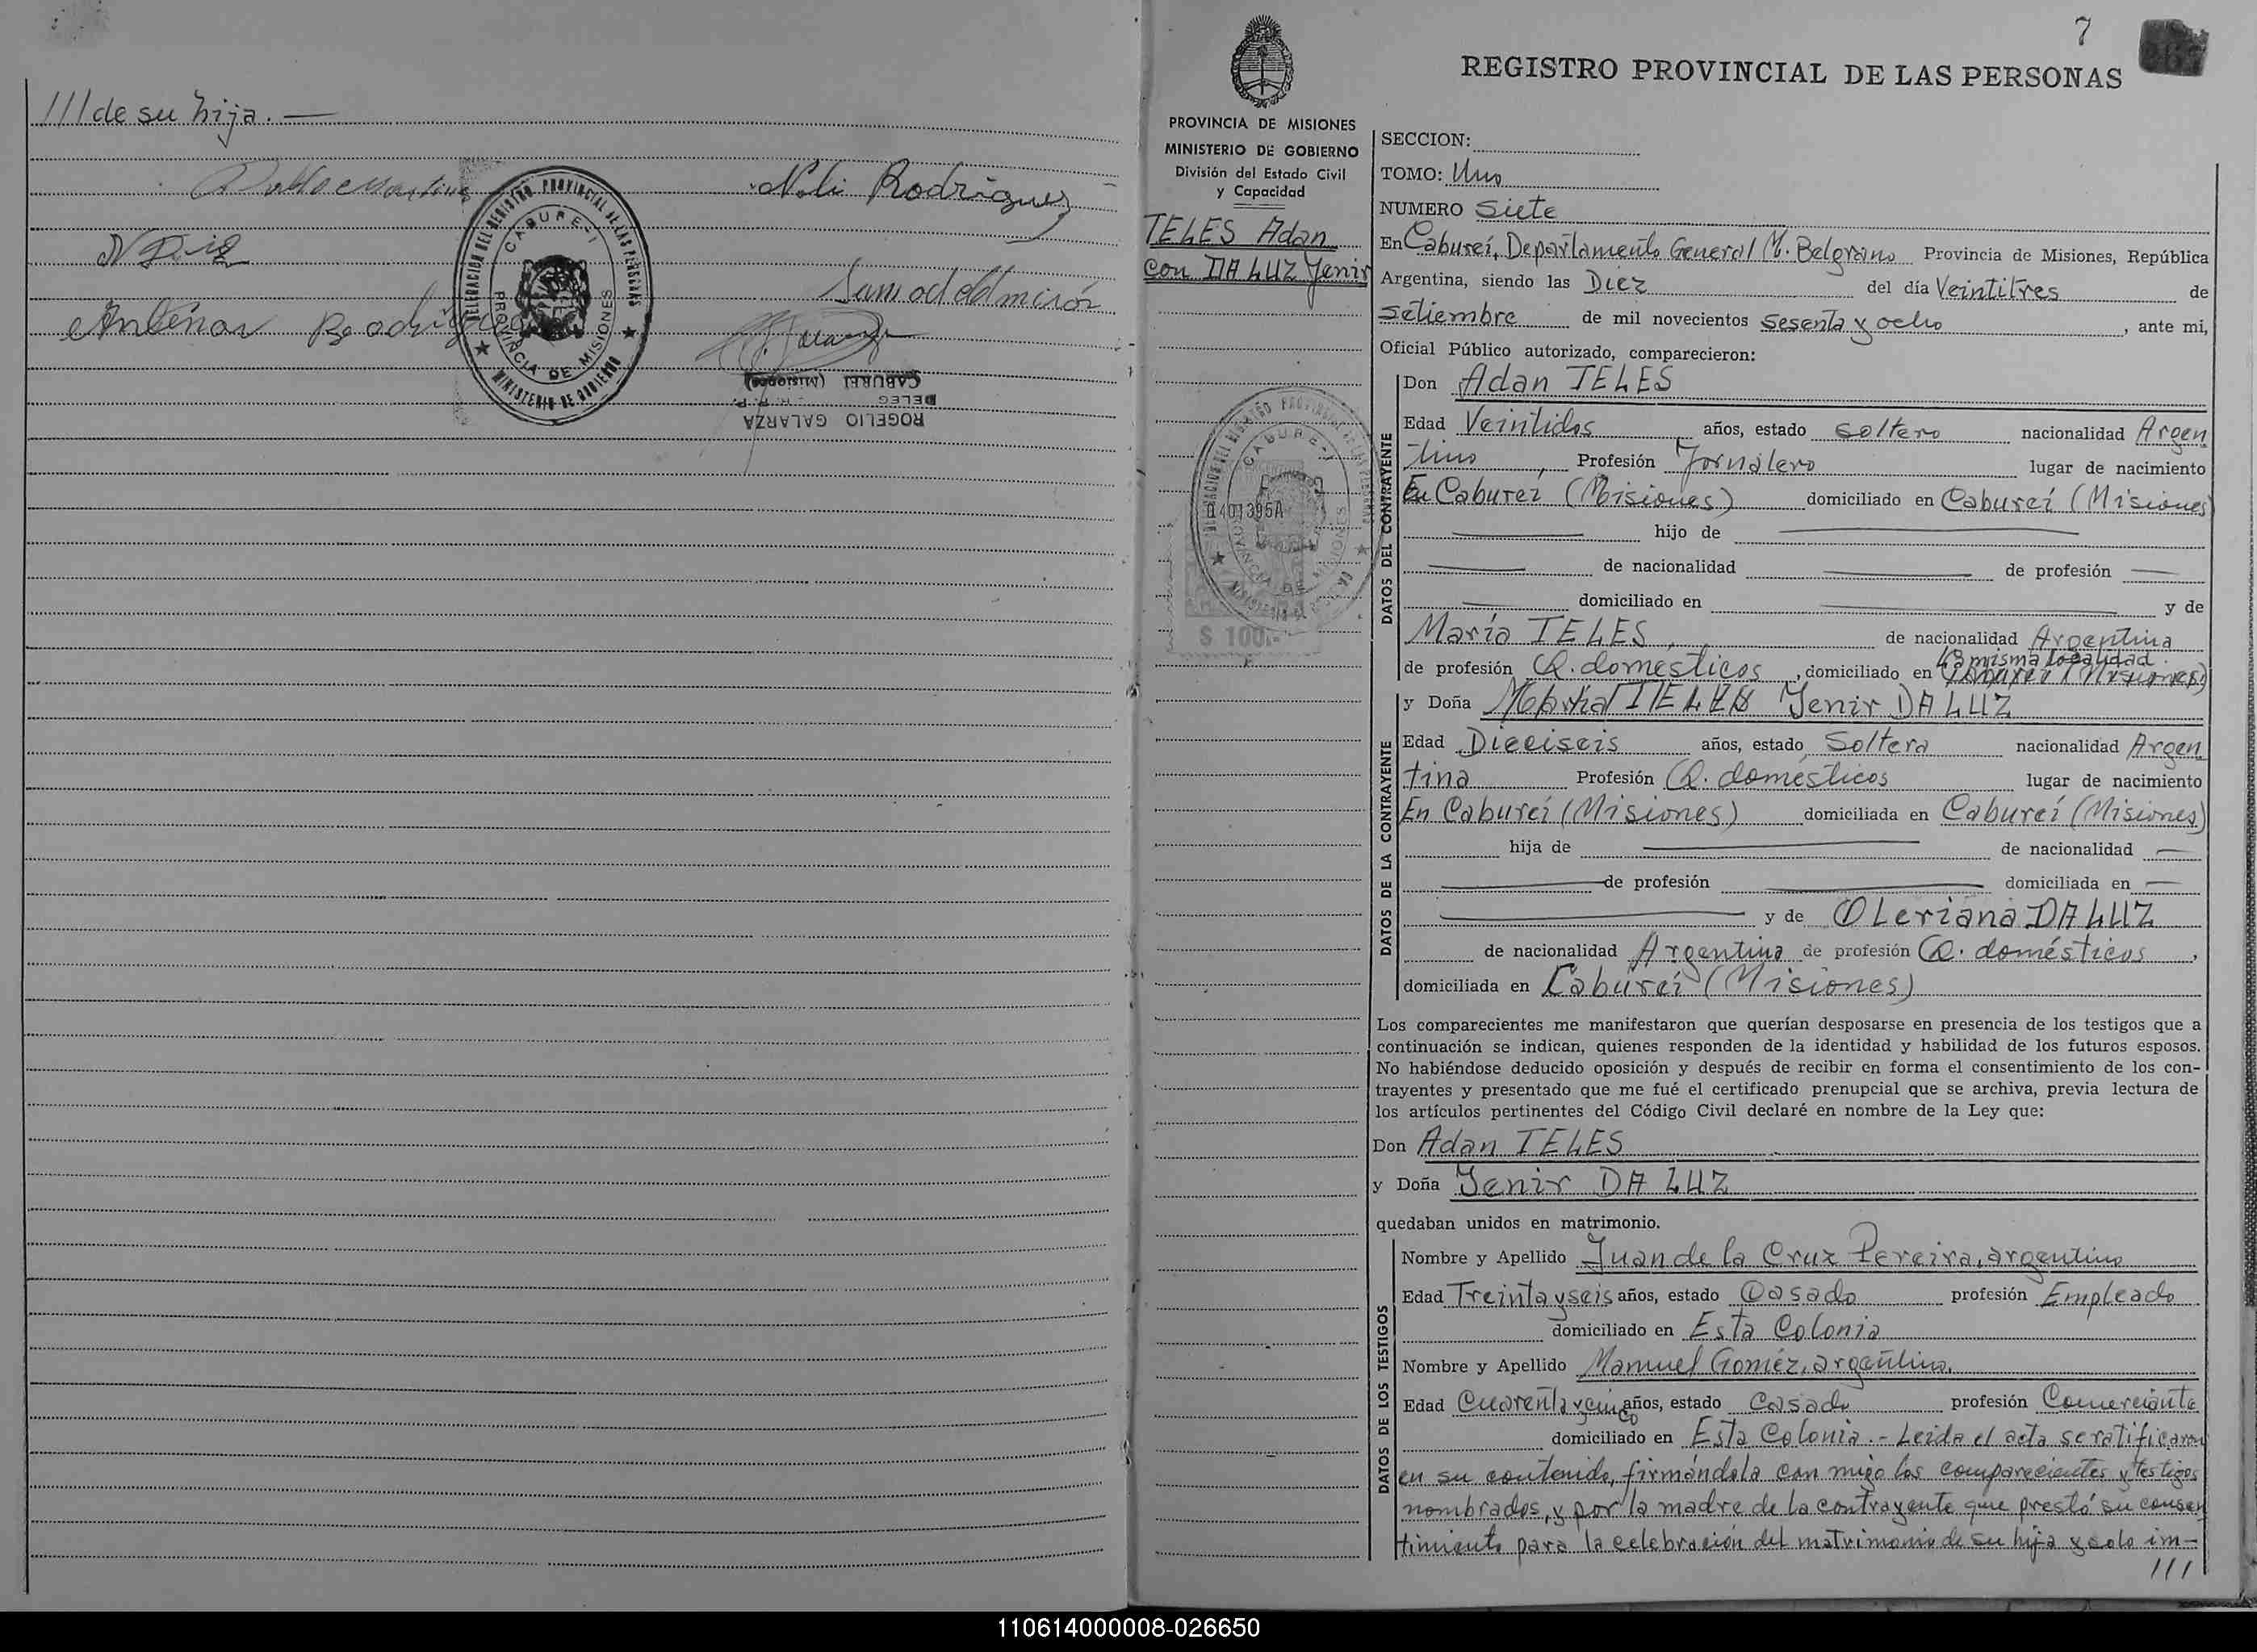 /// de su hija. —
Noli Rodriguez
N Diz
Antenor Rodrigues
DELEGACION DEL REGISTRO PROVINCIAL DE LAS PERSONAS
CABURE-I
PROVINCIA DE MISIONES
MINISTERIO DE GOBIERNO
CABUREI (Misiones)
ROGELIO GALARZA
7
REGISTRO PROVINCIAL DE LAS PERSONAS
PROVINCIA DE MISIONES
MINISTERIO DE GOBIERNO
División del Estado Civil
y Capacidad
TELES Adan
con DA LUZ Jenir
CABURE-I
11401395A
$ 100.-
SECCION:
TOMO: Uno
NUMERO Siete
En Cabureí, Departamento General M. Belgrano Provincia de Misiones, República
Argentina, siendo las Diez del día Veintitres de
setiembre de mil novecientos sesenta y ocho, ante mi,
Oficial Público autorizado, comparecieron:
DATOS DEL CONTRAYENTE
Don Adan TELES
Edad Veintidos años, estado soltero nacionalidad Argen
tino, Profesión Jornalero lugar de nacimiento
En Cabureí (Misiones) domiciliado en Cabureí (Misiones)
hijo de
de nacionalidad de profesión
domiciliado en y de
María TELES, de nacionalidad Argentina
la misma localidad
de profesión Q. domésticos, domiciliado en Cabureí (Misiones)
DATOS DE LA CONTRAYENTE
y Doña María TELES Jenir DA LUZ
Edad Dieciseis años, estado Soltera nacionalidad Argen
tina Profesión Q. domésticos lugar de nacimiento
En Cabureí (Misiones) domiciliada en Cabureí (Misiones)
hija de de nacionalidad
de profesión domiciliada en
y de OLeriana DA LUZ
de nacionalidad Argentina de profesión Q. domésticos,
domiciliada en Cabureí (Misiones)
Los comparecientes me manifestaron que querían desposarse en presencia de los testigos que a
continuación se indican, quienes responden de la identidad y habilidad de los futuros esposos.
No habiéndose deducido oposición y después de recibir en forma el consentimiento de los con-
trayentes y presentado que me fué el certificado prenupcial que se archiva, previa lectura de
los artículos pertinentes del Código Civil declaré en nombre de la Ley que:
Don Adan TELES
y Doña Jenir DA LUZ
quedaban unidos en matrimonio.
DATOS DE LOS TESTIGOS
Nombre y Apellido Juan de la Cruz Pereira, argentino
Edad Treinta y seis años, estado Casado profesión Empleado
domiciliado en Esta Colonia
Nombre y Apellido Manuel Gomez, argentino,
Edad Cuarenta y cinco años, estado Casado profesión Comerciante
domiciliado en Esta Colonia.- Leida el acta se ratificaron
en su contenido, firmándola con migo los comparecientes y testigos
nombrados, y por la madre de la contrayente que prestó su consen
timiento para la celebración del matrimonio de su hija y solo im-
///
110614000008-026650